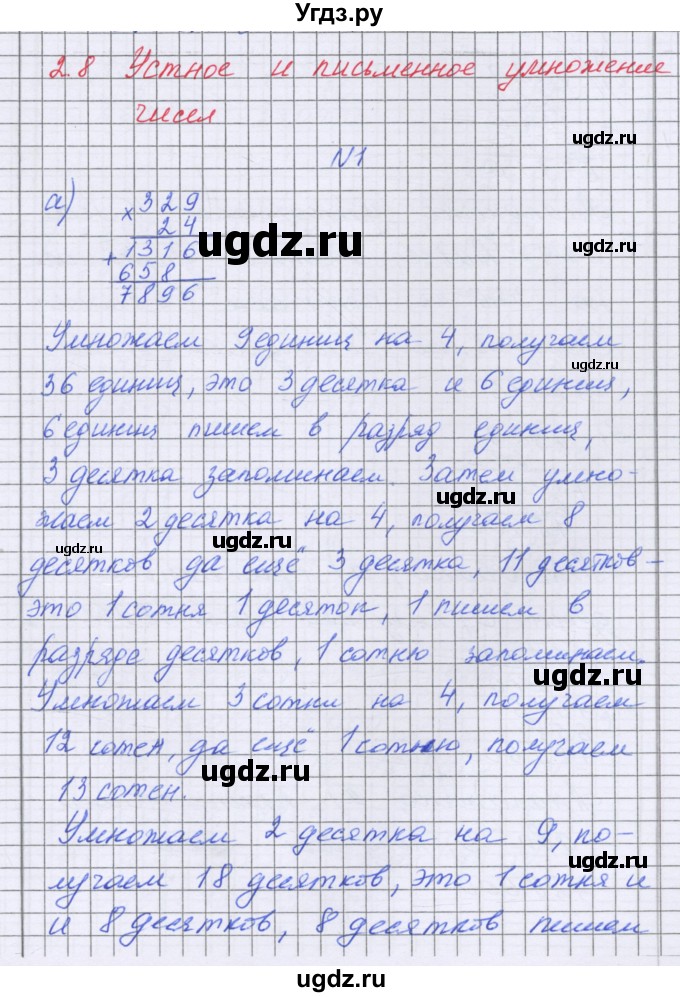 Угдз.ру
2.8 Устное и письменное умножение
чисел
ugdz.ru
N1
ugdz.ru
а) х 329
24
ugdz.ru
+ 1316
ugdz.ru
658
7896
Умножаем 9 единиц на 4, получаем
ugdz.ru
36 единиц, это 3 десятка и 6 единиц,
6 единиц пишем в разряд единиц,
3 десятка запоминаем. Затем умно-
ugdz.ru
жаем 2 десятка на 4, получаем 8
ugdz.ru
десятков да ещё 3 десятка, 11 десятков -
это 1 сотня 1 десяток, 1 пишем в
разряде десятков, 1 сотню запоминаем.
ugdz.ru
Умножаем 3 сотни на 4, получаем
12 сотен, да ещё 1 сотню, получаем
ugdz.ru
13 сотен.
Умножаем 2 десятка на 9, по-
ugdz.ru
лучаем 18 десятков, это 1 сотня и
и 8 десятков, 8 десятков пишем
ugdz.ru